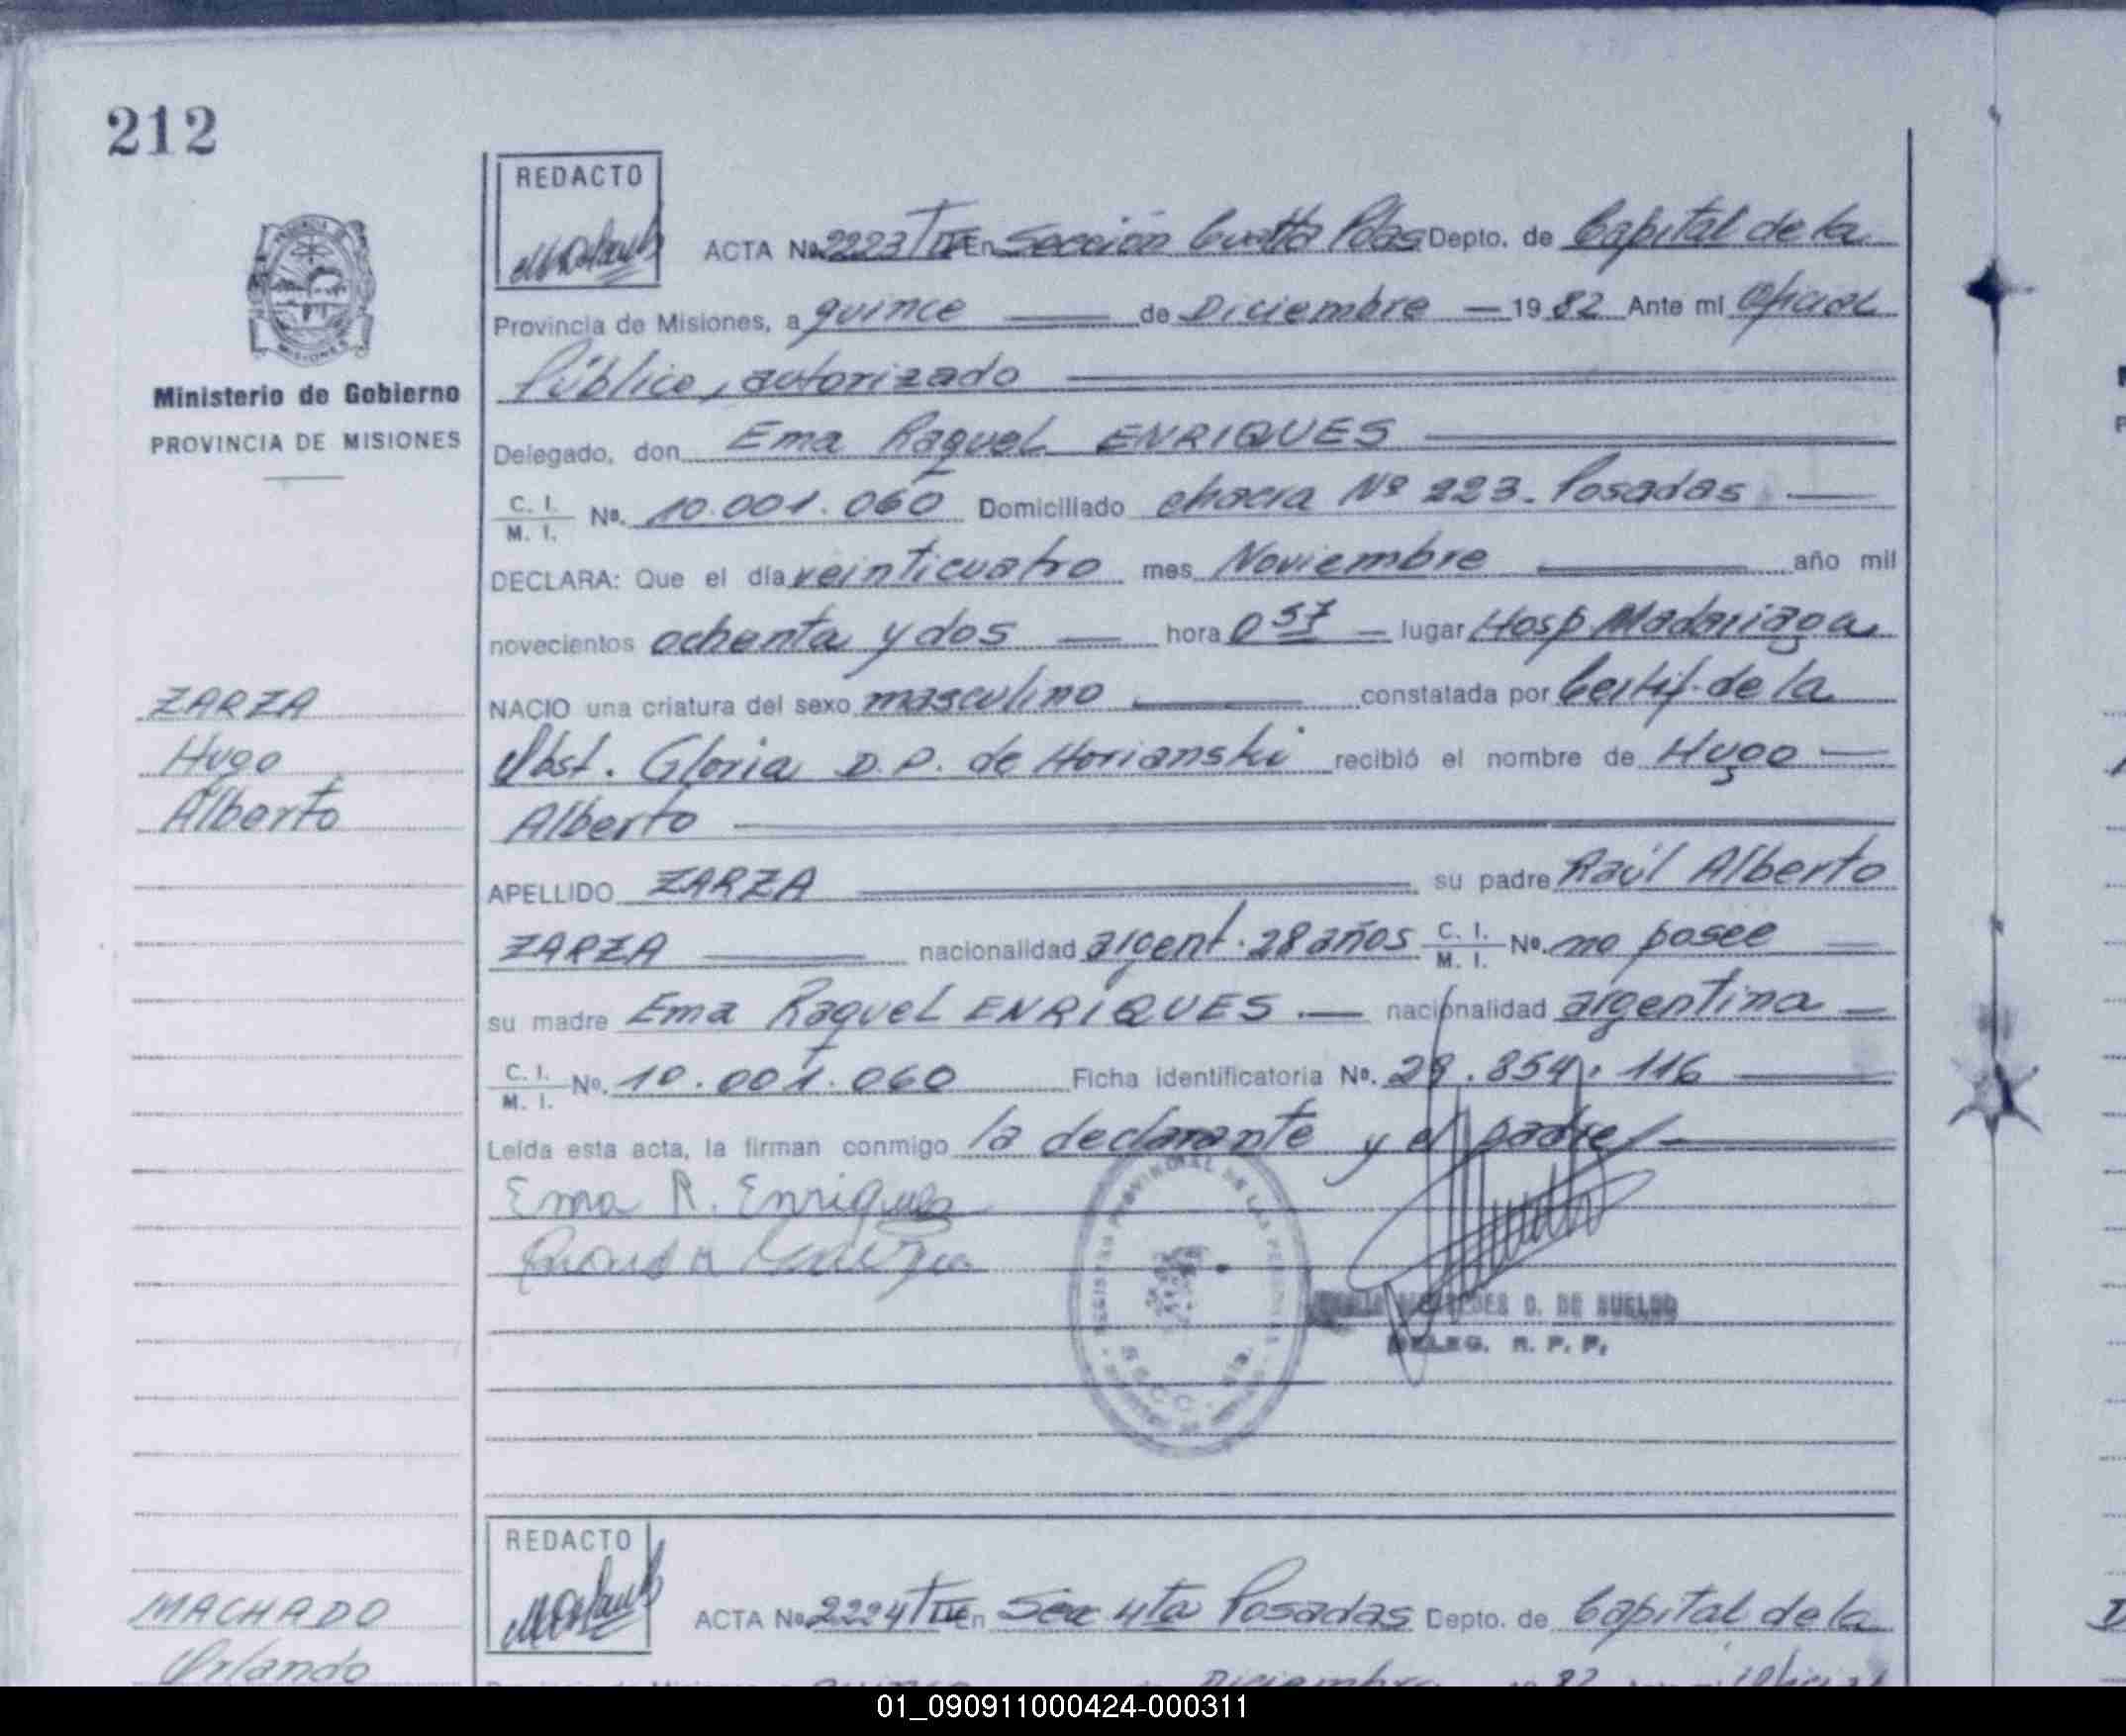 212
REDACTO
ACTA Nº 2223/T III En Sección Cuarta Pdas Depto. de Capital de la
Provincia de Misiones, a quince de Diciembre 1982 Ante mí Oficial
Público, autorizado
Ministerio de Gobierno
PROVINCIA DE MISIONES
Delegado, don Ema Raquel ENRIQUES
C. I. M. I. Nº. 10.001.060 Domiciliado chacra Nº 223. Posadas
DECLARA: Que el día veinticuatro mes Noviembre año mil
novecientos ochenta y dos hora 0 57 lugar Hosp Madariaga
NACIO una criatura del sexo masculino constatada por Certif. de la
Obst. Gloria D.P. de Horianski recibió el nombre de Hugo
Alberto
ZARZA
Hugo
Alberto
APELLIDO ZARZA su padre Raúl Alberto
ZARZA nacionalidad argent. 28 años C. I. M. I. Nº. no posee
su madre Ema Raquel ENRIQUES nacionalidad argentina
C. I. M. I. Nº. 10.001.060 Ficha identificatoria Nº. 29.854.116
Leída esta acta, la firman conmigo la declarante y el padre
Ema R. Enriques
REGISTRO PROVINCIAL DE LAS PERSONAS
SECC. 4ta.
D. DE SUELDO
DELEG. R. P. P.
REDACTO
ACTA Nº 2224/T III En Sec 4ta Posadas Depto. de Capital de la
MACHADO
Orlando
Diciembre 82 Oficial
01_090911000424-000311